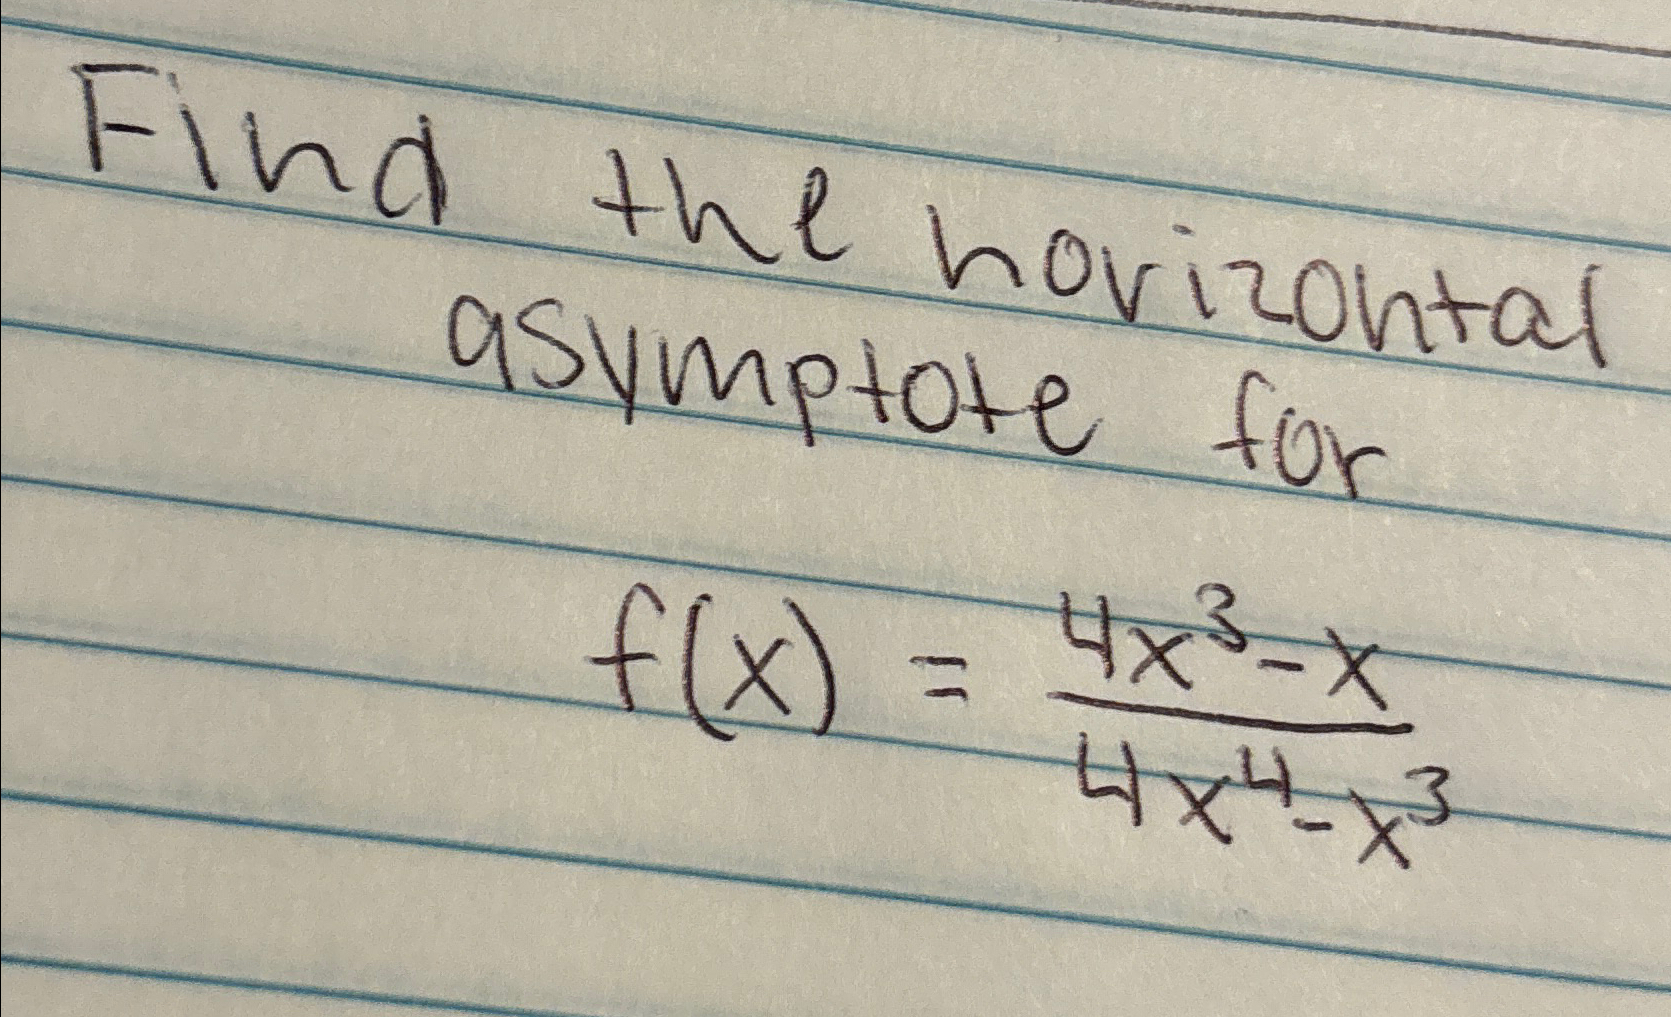 Find the horizontal
asymptote for
f(x) = \frac{4x^3-x}{4x^4-x^3}